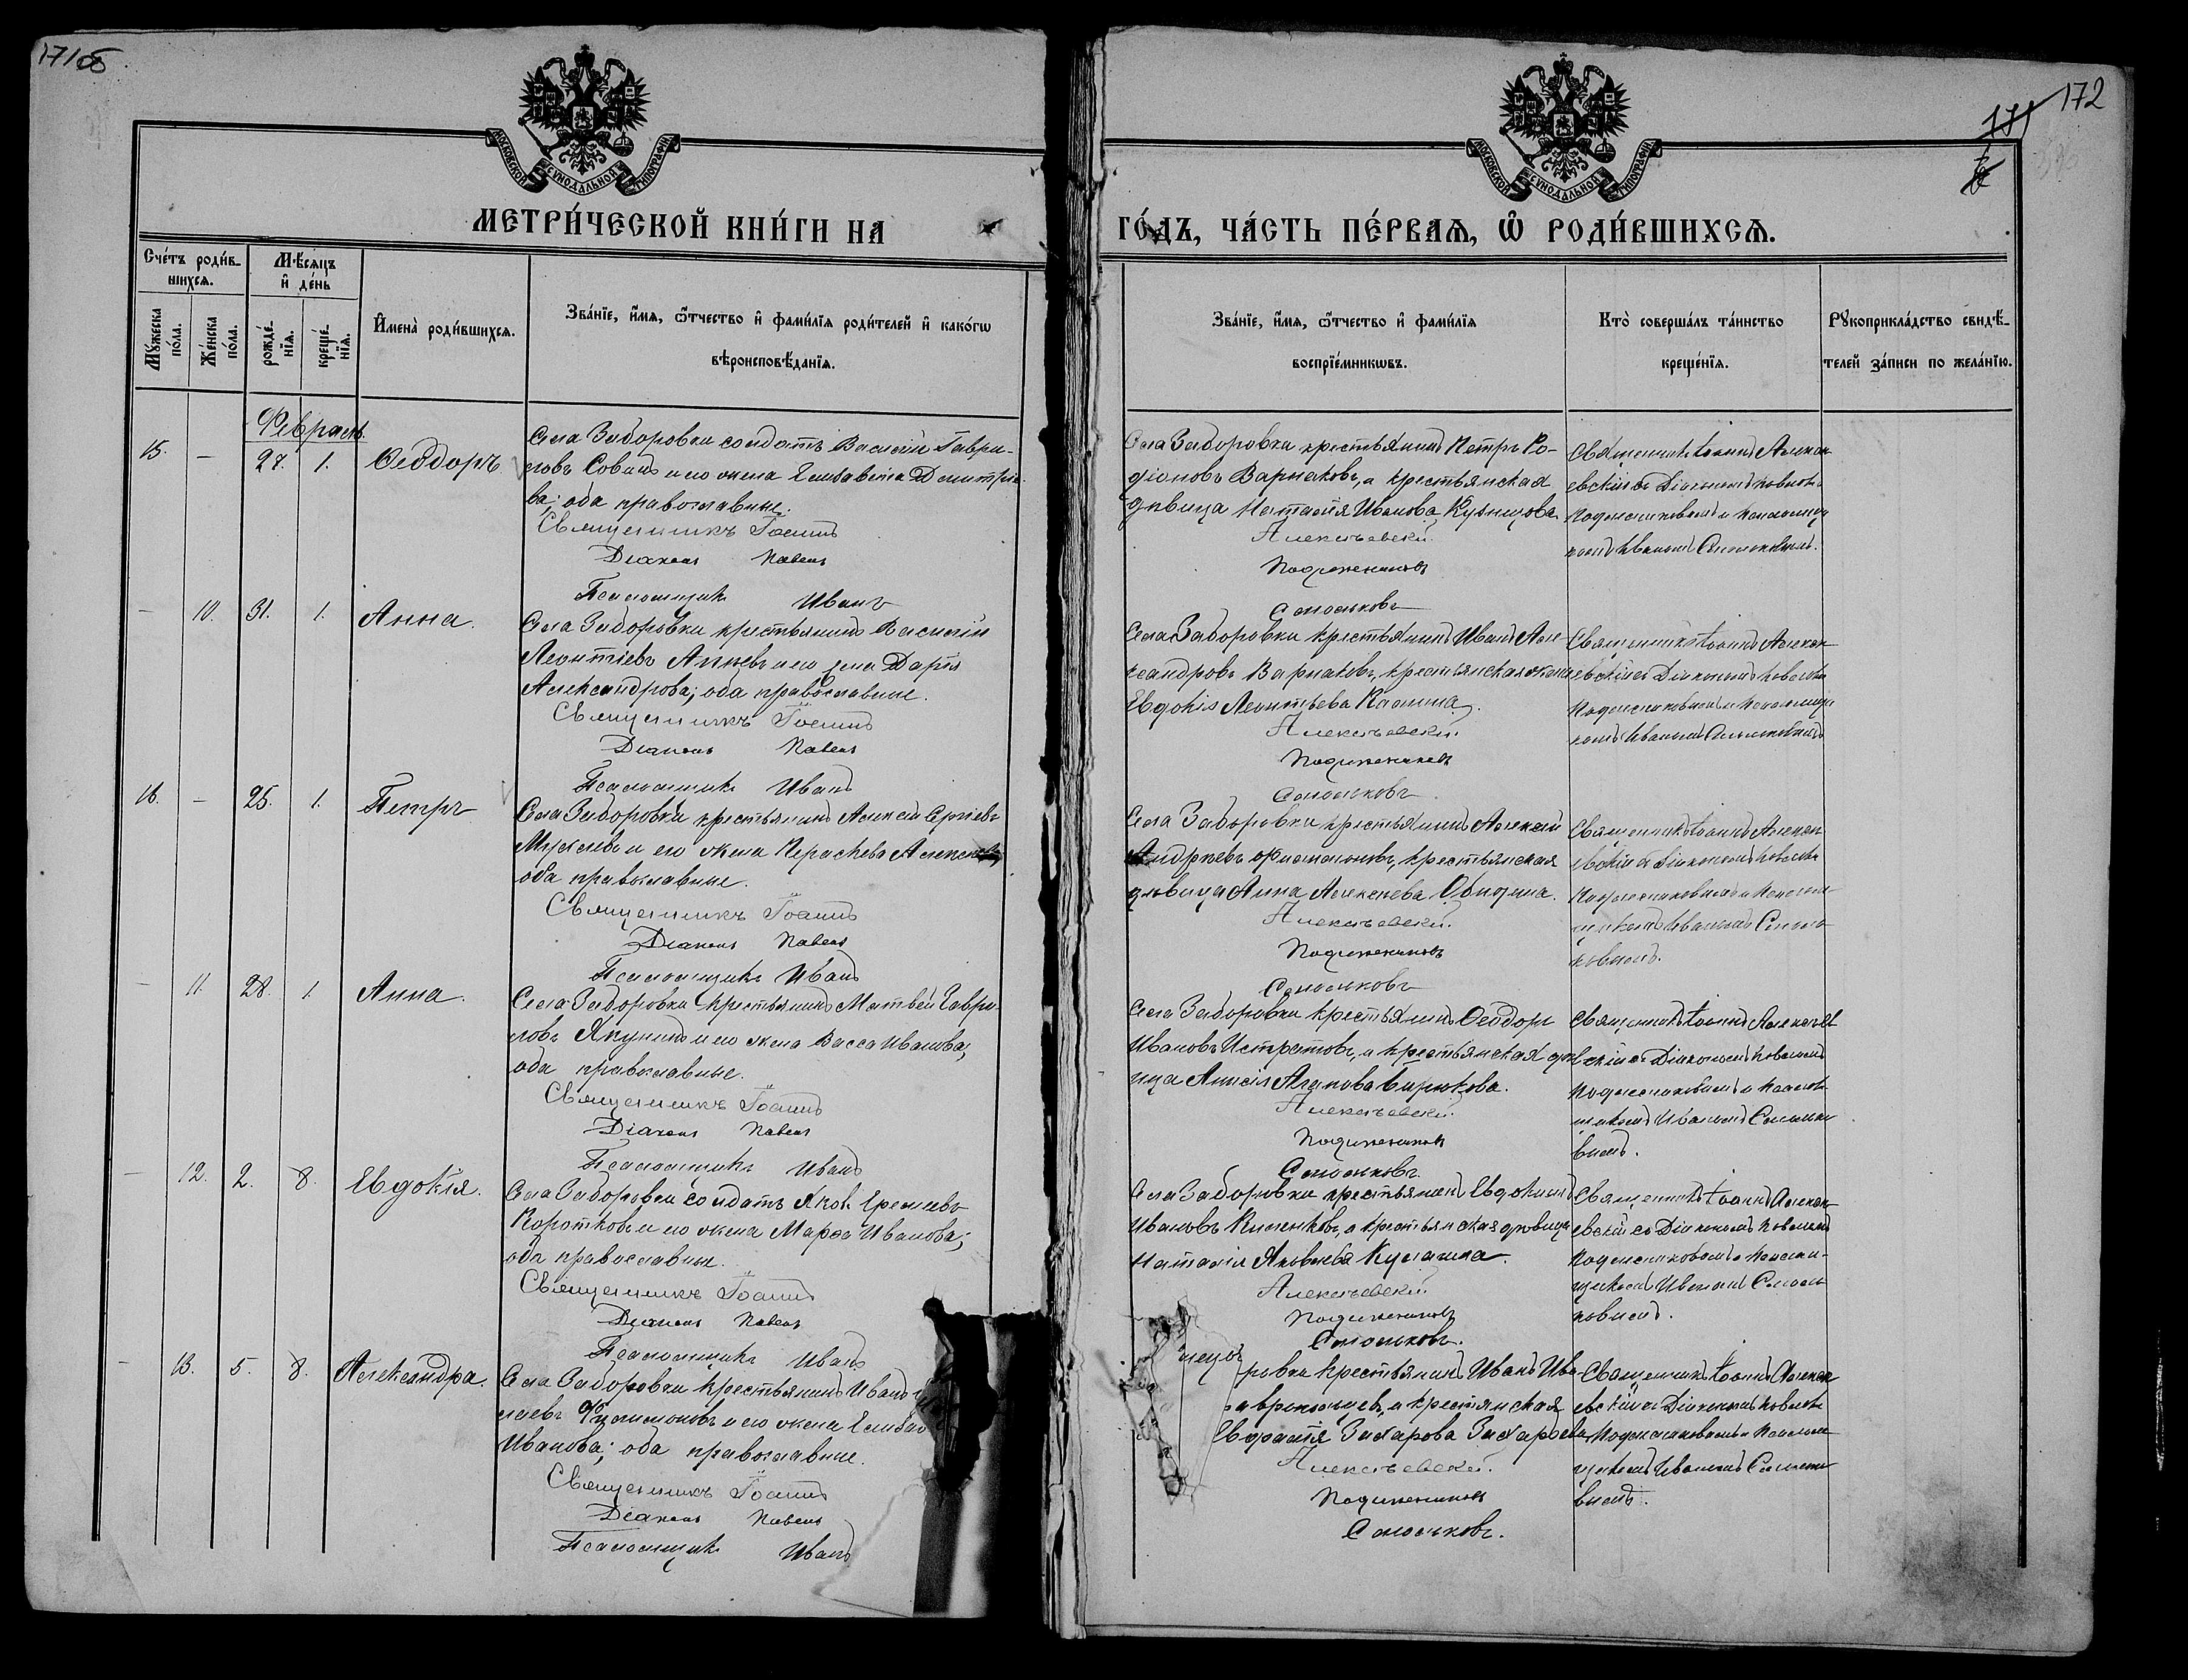 171 об
172
171
МОСКОВСКОЙ СѴНОДАЛЬНОЙ ТИПОГРАФІИ
МОСКОВСКОЙ СѴНОДАЛЬНОЙ ТИПОГРАФІИ
МЕТРИ́ЧЕСКОЙ КНИ́ГИ НА
ГО́ДЪ, ЧА́СТЬ ПЕ́РВАѦ, Ѡ҆ РОДИ́ВШИХСѦ.
Сче́тъ роди́в-
шихсѧ.
Мѣ́сѧцъ
и҆ де́нь
Мꙋ́жеска
по́ла.
Же́нска
по́ла.
рожде́-
нїѧ.
креще́-
нїѧ.
И҆мена̀ роди́вшихсѧ.
Зва́нїе, и҆́мѧ, ѻ҆́тчество и҆ фами́лїѧ роди́телей и҆ како́гѡ
вѣроисповѣ́данїѧ.
Зва́нїе, и҆́мѧ, ѻ҆́тчество и҆ фами́лїѧ
воспрїе́мникѡвъ.
Кто̀ соверша́лъ та́инство
креще́нїѧ.
Рꙋкоприкла́дство свидѣ́-
телей за́писи по жела́нїю.
Февраль.
15. — 27. 1. Ѳеодоръ.
Села Заборовки солдатъ Василій Гаври-
ловъ Совинъ и его жена Елисавета Димитріе-
ва; оба православные.
Священникъ Іоаннъ
Діаконъ Павелъ
Псаломщикъ Иванъ
Села Заборовки крестьянинъ Петръ Ро-
діоновъ Варлаковъ, и крестьянская
дѣвица Наталія Иванова Кузнецова
Алексѣевскій.
Подлесниковъ
Смольковъ
Священникъ Іоаннъ Алексѣ-
евскій съ Діакономъ Павломъ
Подлесниковымъ и псаломщи-
комъ Иваномъ Смольковымъ.
— 10. 31. 1. Анна.
Села Заборовки крестьянинъ Василій
Леонтіевъ и его жена Дарія
Александрова; оба православные.
Священникъ Іоаннъ
Діаконъ Павелъ
Псаломщикъ Иванъ
Села Заборовки крестьянинъ Иванъ Але-
ксандровъ Варлаковъ, крестьянская жена
Евдокія Леонтьева
Алексѣевскій.
Подлесниковъ
Смольковъ
Священникъ Іоаннъ Алексѣ-
евскій съ Діакономъ Павломъ
Подлесниковымъ и псаломщи-
комъ Иваномъ Смольковымъ
16. — 25. 1. Петръ
Села Заборовки крестьянинъ Алексѣй Сергіевъ
и его жена Параскева Алексѣева
оба православные.
Священникъ Іоаннъ
Діаконъ Павелъ
Псаломщикъ Иванъ
Села Заборовки крестьянинъ Алексѣй
Андреевъ Филимоновъ, крестьянская
дѣвица Анна Алексѣева
Алексѣевскій.
Подлесниковъ
Смольковъ
Священникъ Іоаннъ Алексѣ-
евскій съ Діакономъ Павломъ
Подлесниковымъ и псалом-
щикомъ Иваномъ Смоль-
ковымъ.
— 11. 28. 1. Анна.
Села Заборовки крестьянинъ Матвѣй Гаври-
ловъ Якунинъ и его жена Васса Иванова;
оба православные.
Священникъ Іоаннъ
Діаконъ Павелъ
Псаломщикъ Иванъ
Села Заборовки крестьянинъ Ѳеодоръ
Ивановъ Истратовъ, и крестьянская дѣ-
вица Анисія Агапова Бирюкова.
Алексѣевскій.
Подлесниковъ
Смольковъ.
Священникъ Іоаннъ Алексѣев-
скій съ Діакономъ Павломъ
Подлесниковымъ и псалом-
щикомъ Иваномъ Смолько-
вымъ.
— 12. 2. 8. Евдокія.
Села Заборовки солдатъ Яковъ Еремеевъ
Коротковъ и его жена Марѳа Иванова;
оба православные.
Священникъ Іоаннъ
Діаконъ Павелъ
Псаломщикъ Иванъ
Села Заборовки крестьянинъ Евдокимъ
Ивановъ, и крестьянская дѣвица
Наталія Яковлева
Алексѣевскій
Подлесниковъ
Смольковъ.
Священникъ Іоаннъ Алексѣ-
евскій съ Діакономъ Павломъ
Подлесниковымъ и псалом-
щикомъ Иваномъ Смоль-
ковымъ.
— 13. 5. 8. Александра.
Села Заборовки крестьянинъ Иванъ
лаевъ Филимоновъ и его жена Елисав
Иванова; оба православные.
Священникъ Іоаннъ
Діаконъ Павелъ
Псаломщикъ Иванъ
ровки крестьянинъ Иванъ Ива-
и крестьянская
Захарова Захарова
Алексѣевскій.
Подлесниковъ
Смольковъ.
Священникъ Іоаннъ Алексѣ-
евскій съ Діакономъ Павломъ
Подлесниковымъ и псалом-
щикомъ Иваномъ Смолько-
вымъ.